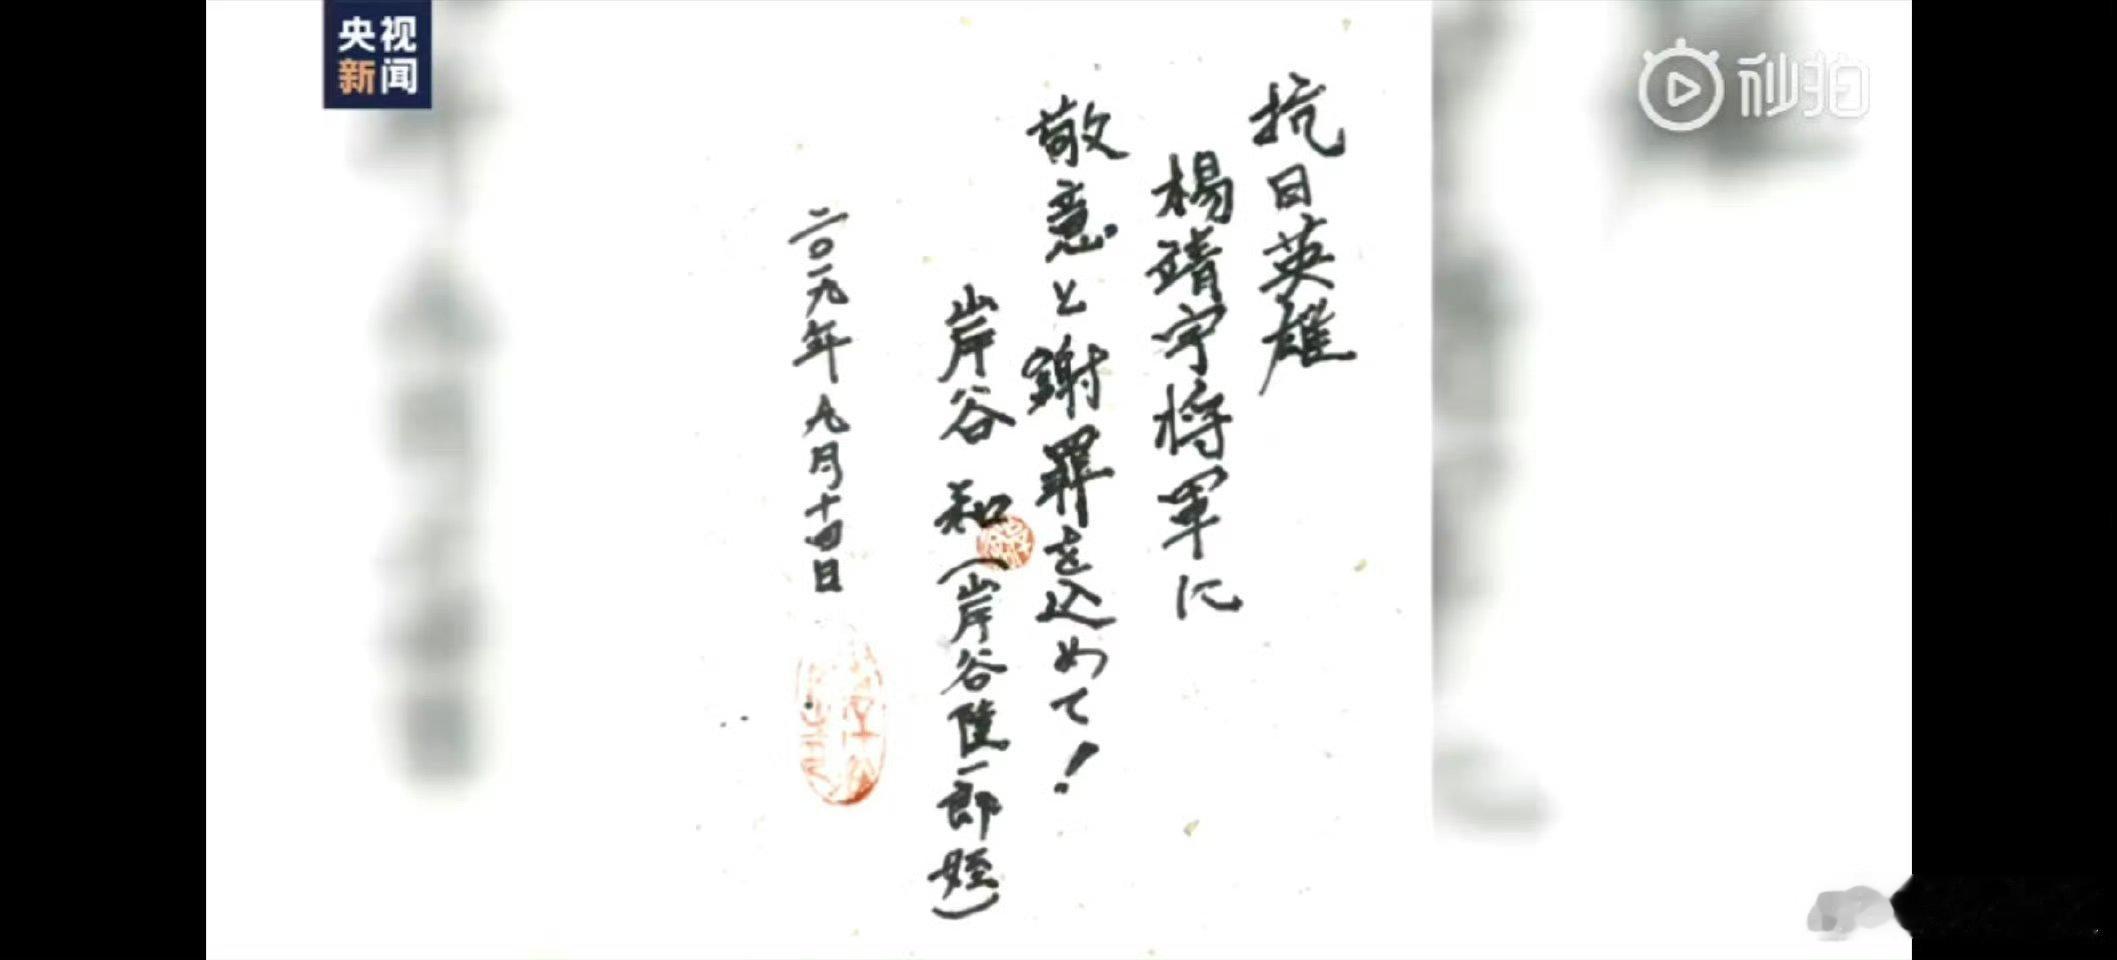 央视
新闻
秒拍
抗日英雄
楊靖宇将軍に
敬意と謝罪を込めて!
岸谷 和(岸谷隆一郎姪)
二〇一九年九月十四日